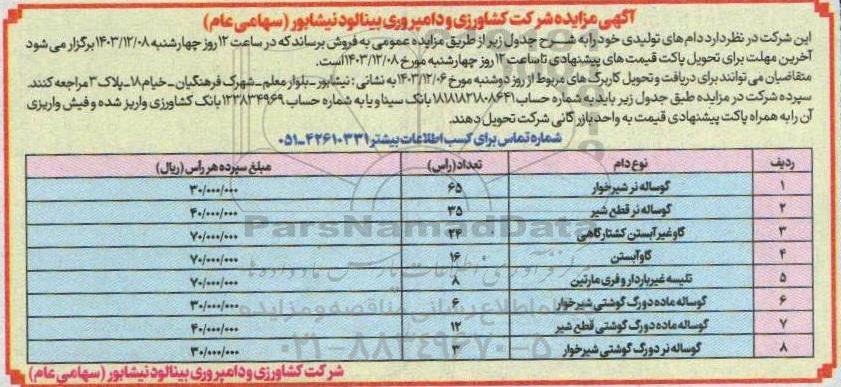 آگهی مزایده شرکت کشاورزی و دامپروری بینالود نیشابور (سهامی عام)
این شرکت در نظر دارد دام های تولیدی خود را به شرح جدول زیر از طریق مزایده عمومی به فروش برساند که در ساعت ۱۲ روز چهارشنبه ۱۴۰۳/۱۲/۰۸ برگزار می شود
آخرین مهلت برای تحویل پاکت قیمت های پیشنهادی تا ساعت ۱۲ روز چهارشنبه مورخ ۱۴۰۳/۱۲/۰۸ است.
متقاضیان می توانند برای دریافت و تحویل کاربرگ های مربوط از روز دوشنبه مورخ ۱۴۰۳/۱۲/۰۶ به نشانی : نیشابور ـ بلوار معلم ـ شهرک فرهنگیان ـ خیام ۱۸ ـ پلاک ۳ مراجعه کنند.
سپرده شرکت در مزایده طبق جدول زیر باید به شماره حساب ۱۸۱۸۱۸۲۱۸۰۸۶۴۱ بانک سینا و یا به شماره حساب ۱۲۳۸۳۴۹۶۹ بانک کشاورزی واریز شده و فیش واریزی
آن را به همراه پاکت پیشنهادی قیمت به واحد بازرگانی شرکت تحویل دهند.
شماره تماس برای کسب اطلاعات بیشتر ۴۲۶۱۰۳۳۱-۰۵۱
ردیف نوع دام تعداد (راس) مبلغ سپرده هر راس (ریال)
۱ گوساله نر شیرخوار ۶۵ ۳۰/۰۰۰/۰۰۰
۲ گوساله نر قطع شیر ۳۵ ۴۰/۰۰۰/۰۰۰
۳ گاو غیر آبستن کشتارگاهی ۲۴ ۷۰/۰۰۰/۰۰۰
۴ گاو آبستن ۱۶ ۷۰/۰۰۰/۰۰۰
۵ تلیسه غیرباردار و فری مارتین ۸ ۷۰/۰۰۰/۰۰۰
۶ گوساله ماده دورگ گوشتی شیرخوار ۶ ۳۰/۰۰۰/۰۰۰
۷ گوساله ماده دورگ گوشتی قطع شیر ۱۲ ۴۰/۰۰۰/۰۰۰
۸ گوساله نر دورگ گوشتی شیرخوار ۳ ۳۰/۰۰۰/۰۰۰
شرکت کشاورزی و دامپروری بینالود نیشابور (سهامی عام)
ParsNamadData
۰۲۱-۸۸۳۴۹۶۷۰-۵